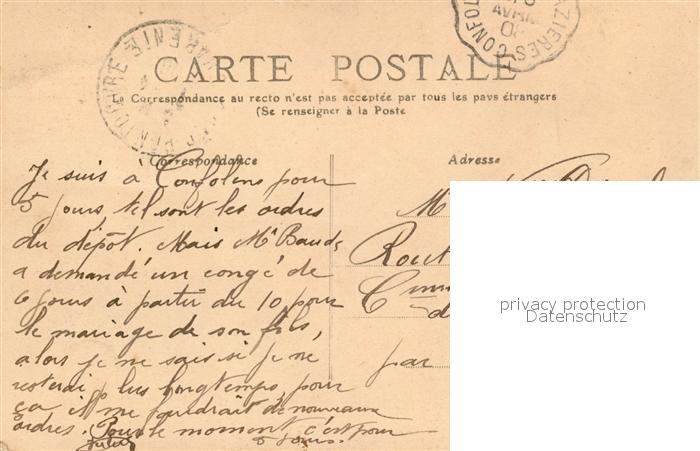 AZIERES CONFOL
AVRIL
08
CHARENTE
CARTE POSTALE
La Correspondance au recto n'est pas acceptée par tous les pays étrangers
(Se renseigner à la Poste
Correspondance
Adresse
Je suis à Confolens pour
5 jours, tel sont les ordres
du dépôt. Mais Mr Baud
a demandé un congé de
6 jours à partir du 10 pour
le mariage de son fils,
alors je ne sais si je ne
resterai plus longtemps, pour
ça il me faudrait de nouveaux
ordres. Pour le moment c'est pour
5 jours.
M
Rout
C
d
par
privacy protection
Datenschutz